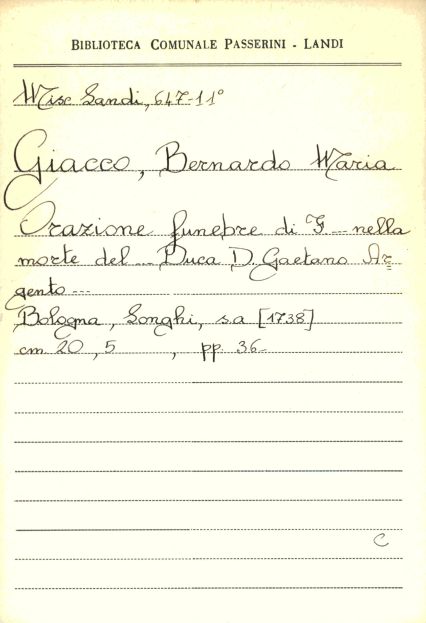 BIBLIOTECA COMUNALE PASSERINI - LANDI
Misc Landi, 647-11°
Giacco, Bernardo Maria
Orazione funebre di F... nella
morte del ... Duca D. Gaetano Ar=
gento ...
Bologna, Longhi, s.a [1738]
cm 20,5 , pp. 36-
C